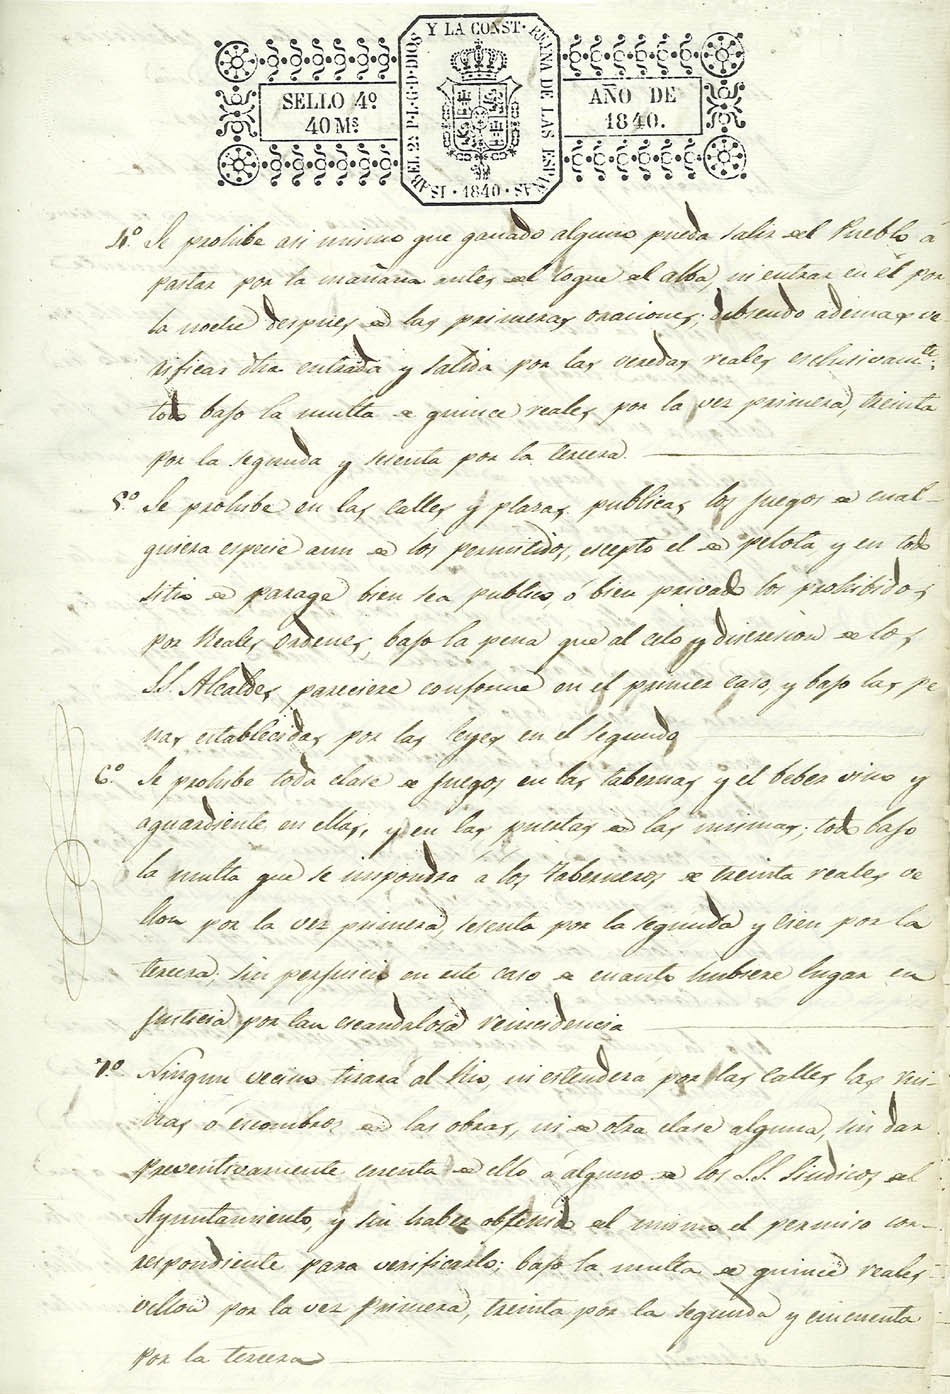 SELLO 4º
40 Mˢ
ISABEL 2ª P. L. G. D. DIOS Y LA CONST. REYNA DE LAS ESPAÑAS · 1840 ·
AÑO DE
1840.
4º. Se prohibe asi mismo que ganado alguno pueda salir del Pueblo á
pastar por la mañana antes del toque del alba, ni entrar en él por
la noche despues de las primeras oraciones; debiendo ademas ve
rificar dha entrada y salida por las veredas reales esclusivamte.;
todo bajo la multa de quince reales por la vez primera, treinta
por la segunda y sesenta por la tercera.
5º. Se prohibe en las calles y plazas publicas los juegos de cual-
quiera especie aun de los permitidos, escepto el de pelota, y en todo
sitio de parage bien sea publico, ó bien privado los prohibidos
por Reales ordenes, bajo la pena que al celo y discresion de los
S.S. Alcaldes pareciere conforme en el primer caso, y bajo las pe
nas establecidas por las leyes en el segundo
6º. Se prohibe toda clase de juegos en las tabernas y el beber vino y
aguardiente en ellas, y en las puertas de las mismas; todo bajo
la multa que se impondrá á los Taberneros de treinta reales ve
llon por la vez primera, sesenta por la segunda y cien por la
tercera; sin perjuicio en este caso de cuanto hubiere lugar en
justicia por tan escandalosa reincidencia
7º. Ningun vecino tirará al Rio, ni estenderá por las calles las rui-
nas ó escombros de las obras, ni de otra clase alguna, sin dar
preventivamente cuenta de ello á alguno de los S.S. Sindicos del
Ayuntamiento, y sin haber obtenido del mismo el permiso cor-
respondiente para verificarlo; bajo la multa de quince reales
vellon por la vez primera, treinta por la segunda y cincuenta
por la tercera